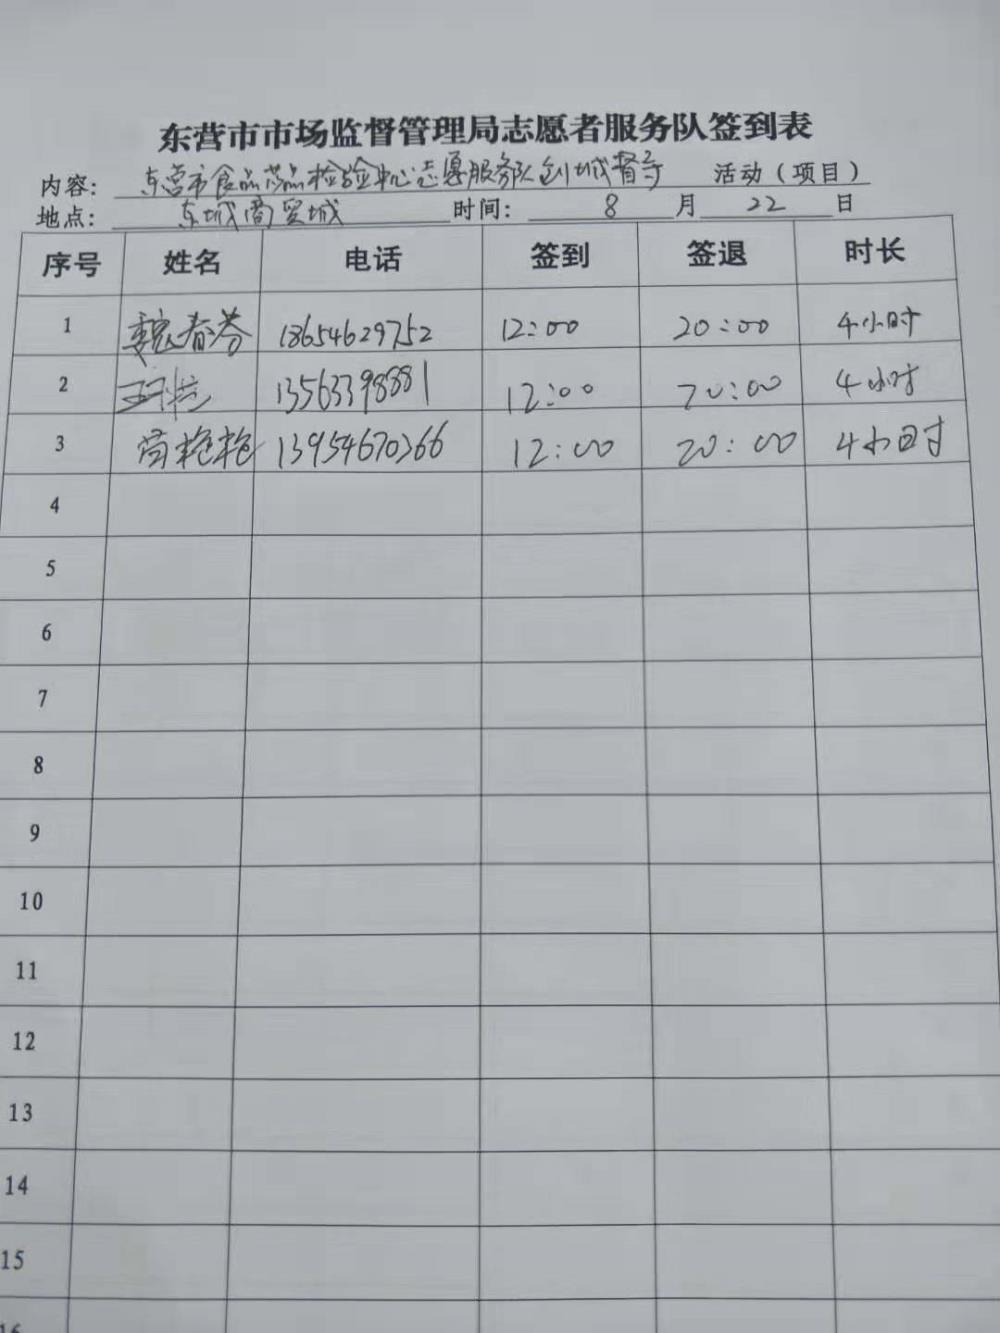 东营市市场监督管理局志愿者服务队签到表
内容: 东营市食品药品检验中心志愿服务队创城督导 活动(项目)
地点: 东城商贸城 时间: 8 月 22 日
序号 姓名 电话 签到 签退 时长
1 魏春芬 18654629752 12:00 20:00 4小时
2 13563398881 12:00 20:00 4小时
3 苟艳艳 13954670366 12:00 20:00 4小时
4
5
6
7
8
9
10
11
12
13
14
15
16